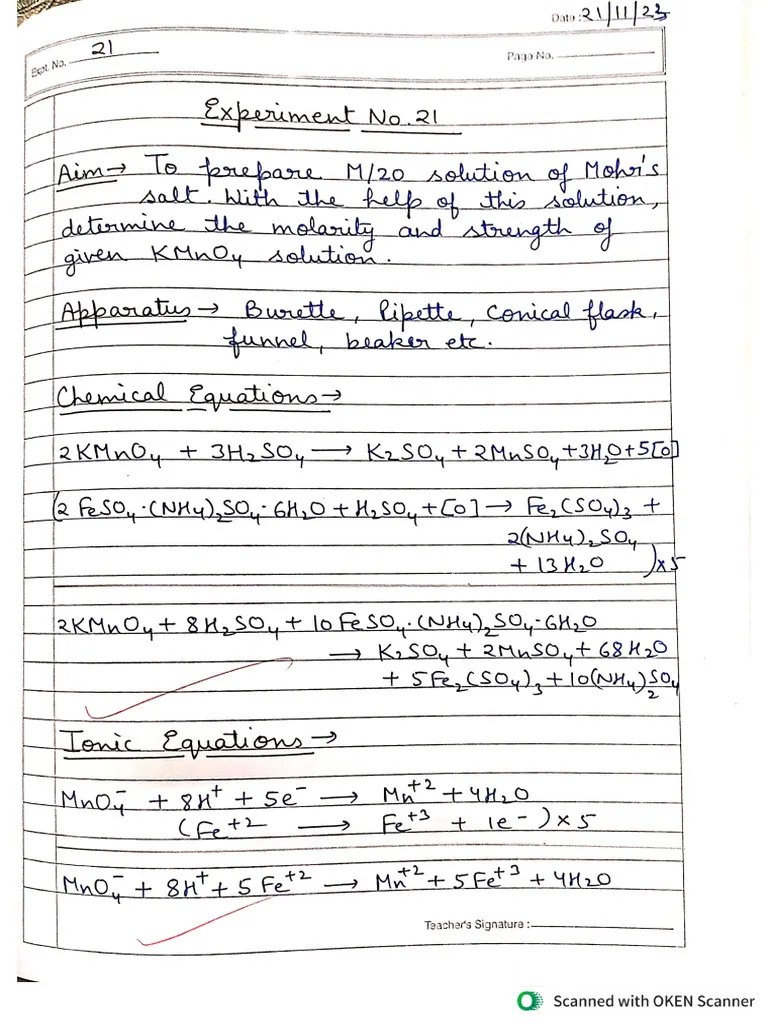 Date: 21/11/23
Expt. No. 21
Page No.
Experiment No. 21
Aim → To prepare M/20 solution of Mohr's
salt. With the help of this solution,
determine the molarity and strength of
given KMnO₄ solution.
Apparatus → Burette, Pipette, Conical flask,
funnel, beaker etc.
Chemical Equations →
2KMnO₄ + 3H₂SO₄ → K₂SO₄ + 2MnSO₄ + 3H₂O + 5[O]
(2 FeSO₄·(NH₄)₂SO₄·6H₂O + H₂SO₄ + [O] → Fe₂(SO₄)₃ +
2(NH₄)₂SO₄
+ 13H₂O )×5
2KMnO₄ + 8H₂SO₄ + 10FeSO₄·(NH₄)₂SO₄·6H₂O
→ K₂SO₄ + 2MnSO₄ + 68H₂O
+ 5Fe₂(SO₄)₃ + 10(NH₄)₂SO₄
Ionic Equations →
MnO₄⁻ + 8H⁺ + 5e⁻ → Mn⁺² + 4H₂O
(Fe⁺² → Fe⁺³ + 1e⁻)×5
MnO₄⁻ + 8H⁺ + 5Fe⁺² → Mn⁺² + 5Fe⁺³ + 4H₂O
Teacher's Signature :
Scanned with OKEN Scanner